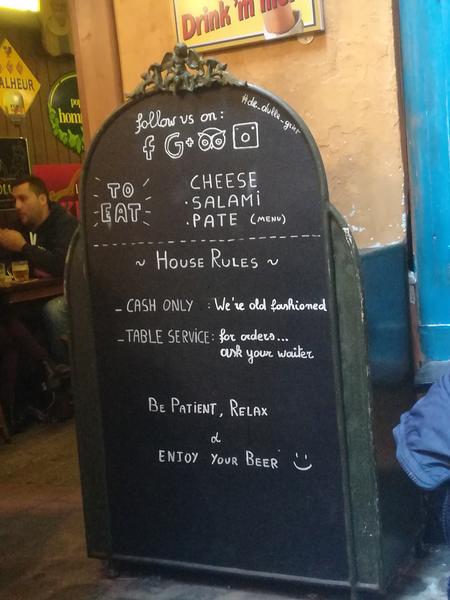 Drink 'm
ALHEUR
follow us on:
#de_dulle_griet
f G+
TO
EAT
CHEESE
· SALAMi
· PATE (MENU)
~ HOUSE RULES ~
- CASH ONLY : We're old fashioned
- TABLE SERVICE: for orders...
ask your waiter
BE PATiENT, RELAX
&
ENJOY YOUR BEER